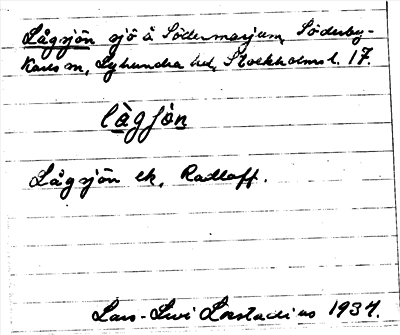 Lågsjön sjö å Södermarjum, Söderby-
Karls sn, Lyhundra hd, Stockholms l. 17.
lågſòn
Lågsjön ek, Radloff.
Lars-Levi Læstadius 1937.